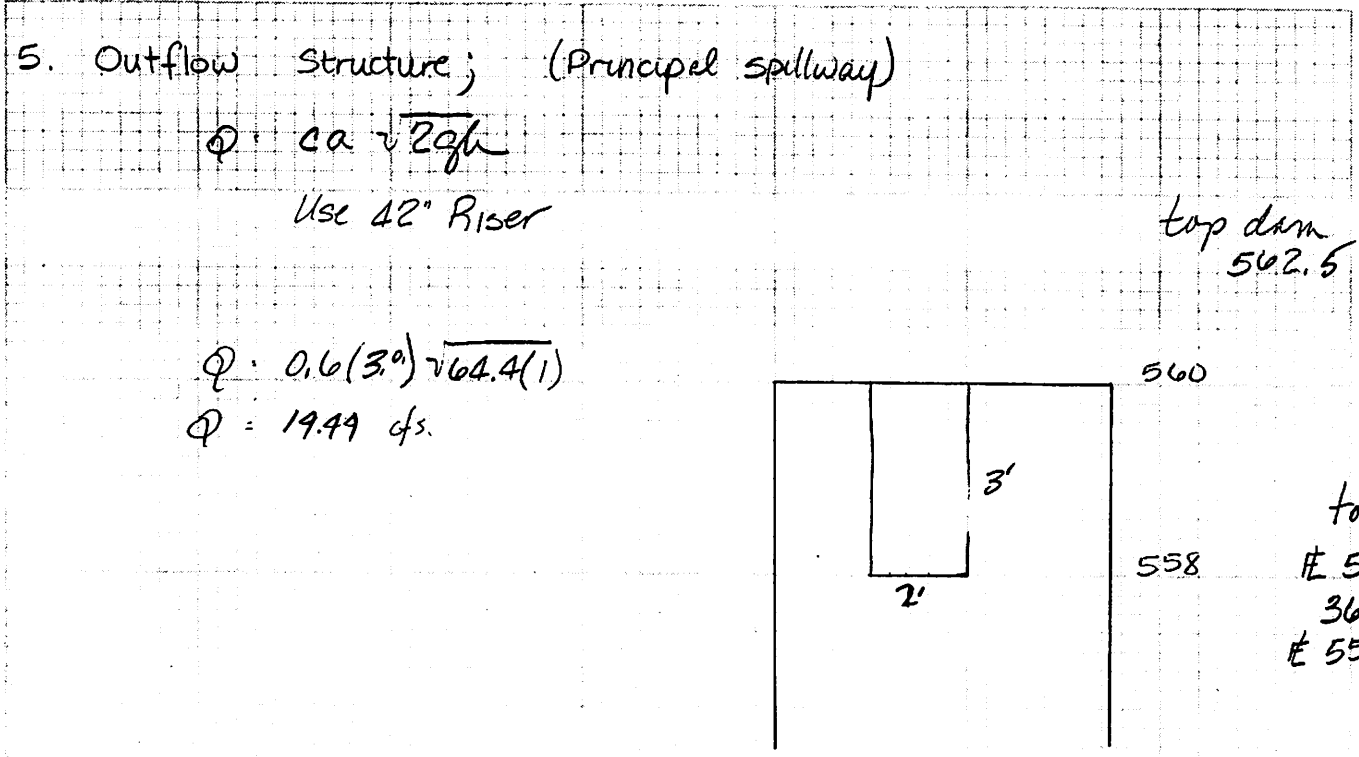 5. Outflow Structure; (Principal spillway)
Q = ca √2gh
Use 42" Riser
top dam
562.5
Q = 0.6(3.0) √64.4(1)
Q = 14.44 cfs.
560
3'
558
2'
to
36